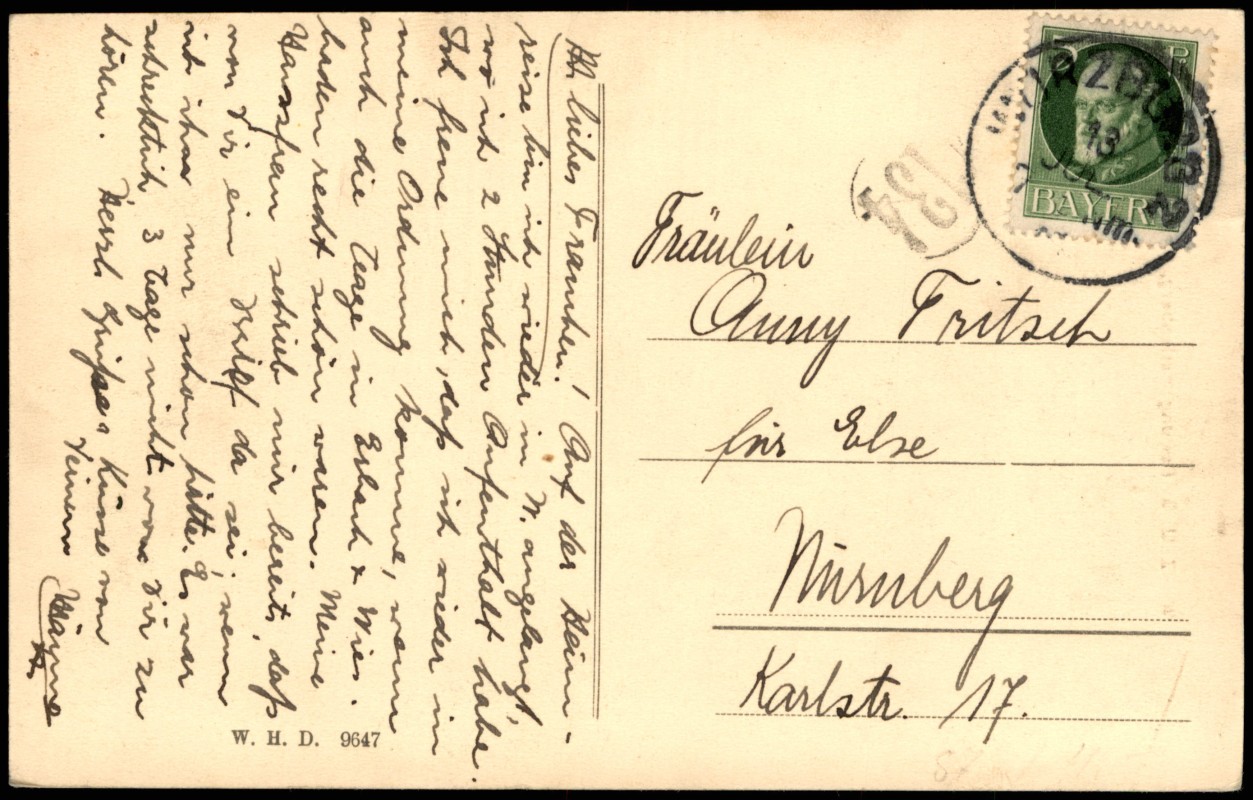 Mein liebes Frauchen! Auf der Heim-
reise bin ich wieder in W. angelangt,
wo ich 2 Stunden Aufenthalt habe.
Ich freue mich, daß ich wieder in
meine Ordnung komme, wenn
auch die Tage in Erbach & Wies.
baden recht schön waren. Meine
Hausfrau schrieb mir bereits, daß
von Dir ein Brief da sei, wenn
ich ihn nur schon hätte. Es war
schrecklich 3 Tage nicht von Dir zu
hören. Herzl. Grüße & Küsse von
Deinem
W. H. D. 9647
BAYERN
WÜRZBURG 2
13 JUL
134
Fräulein
Anny Fritsch
für Else
Nürnberg
Karlstr. 17.